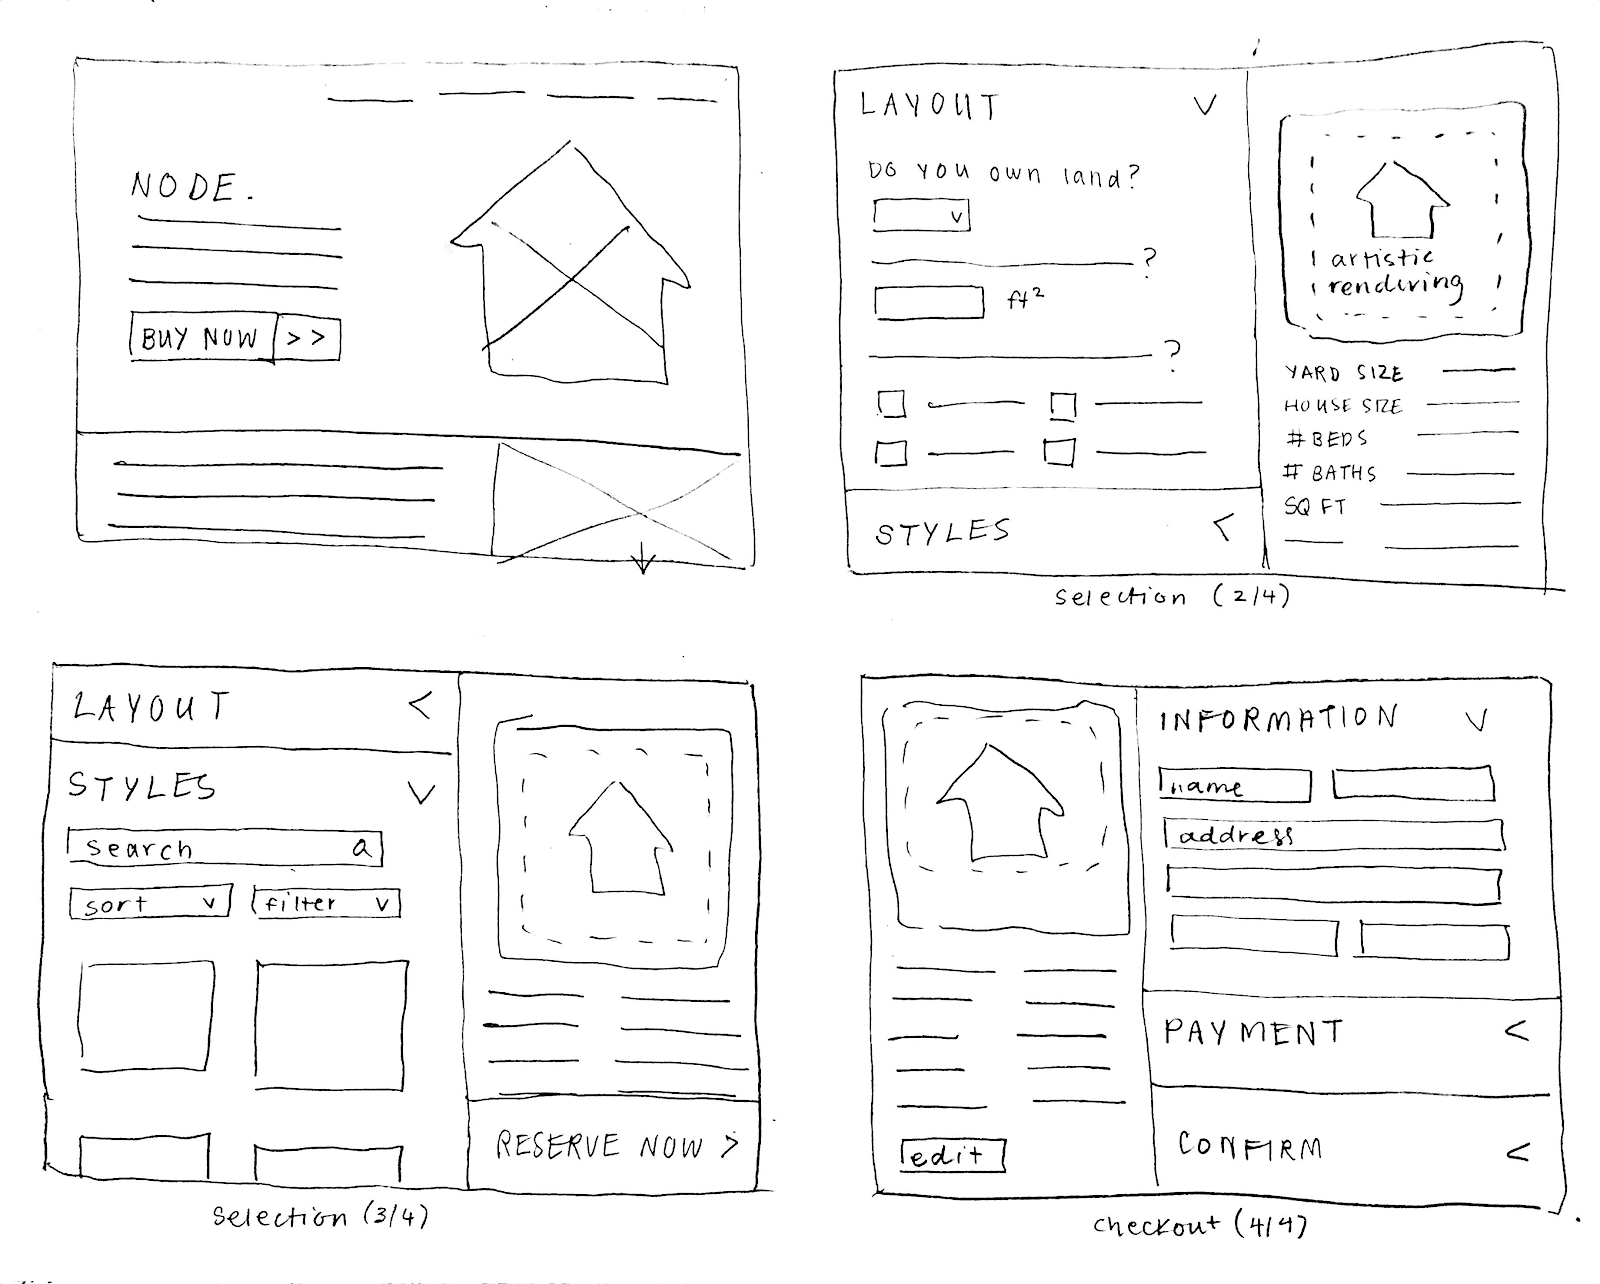 NODE.
BUY NOW >>
LAYOUT V
DO YOU own land?
V
?
ft²
?
STYLES <
artistic
rendering
YARD SIZE
HOUSE SIZE
# BEDS
# BATHS
SQ FT
selection (2/4)
LAYOUT <
STYLES V
search
sort V filter V
RESERVE NOW >
selection (3/4)
INFORMATION V
name
address
PAYMENT <
CONFIRM <
edit
checkout (4/4)